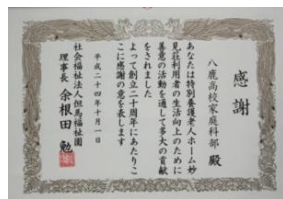 感謝
八鹿高校家庭科部 殿
あなたは特別養護老人ホーム妙
見荘利用者の生活向上のために
善意の活動を通して多大の貢献
をされました
よって創立二十周年にあたりこ
こに感謝の意を表します
平成二十四年十月一日
社会福祉法人但馬福祉園
理事長 余根田 勉